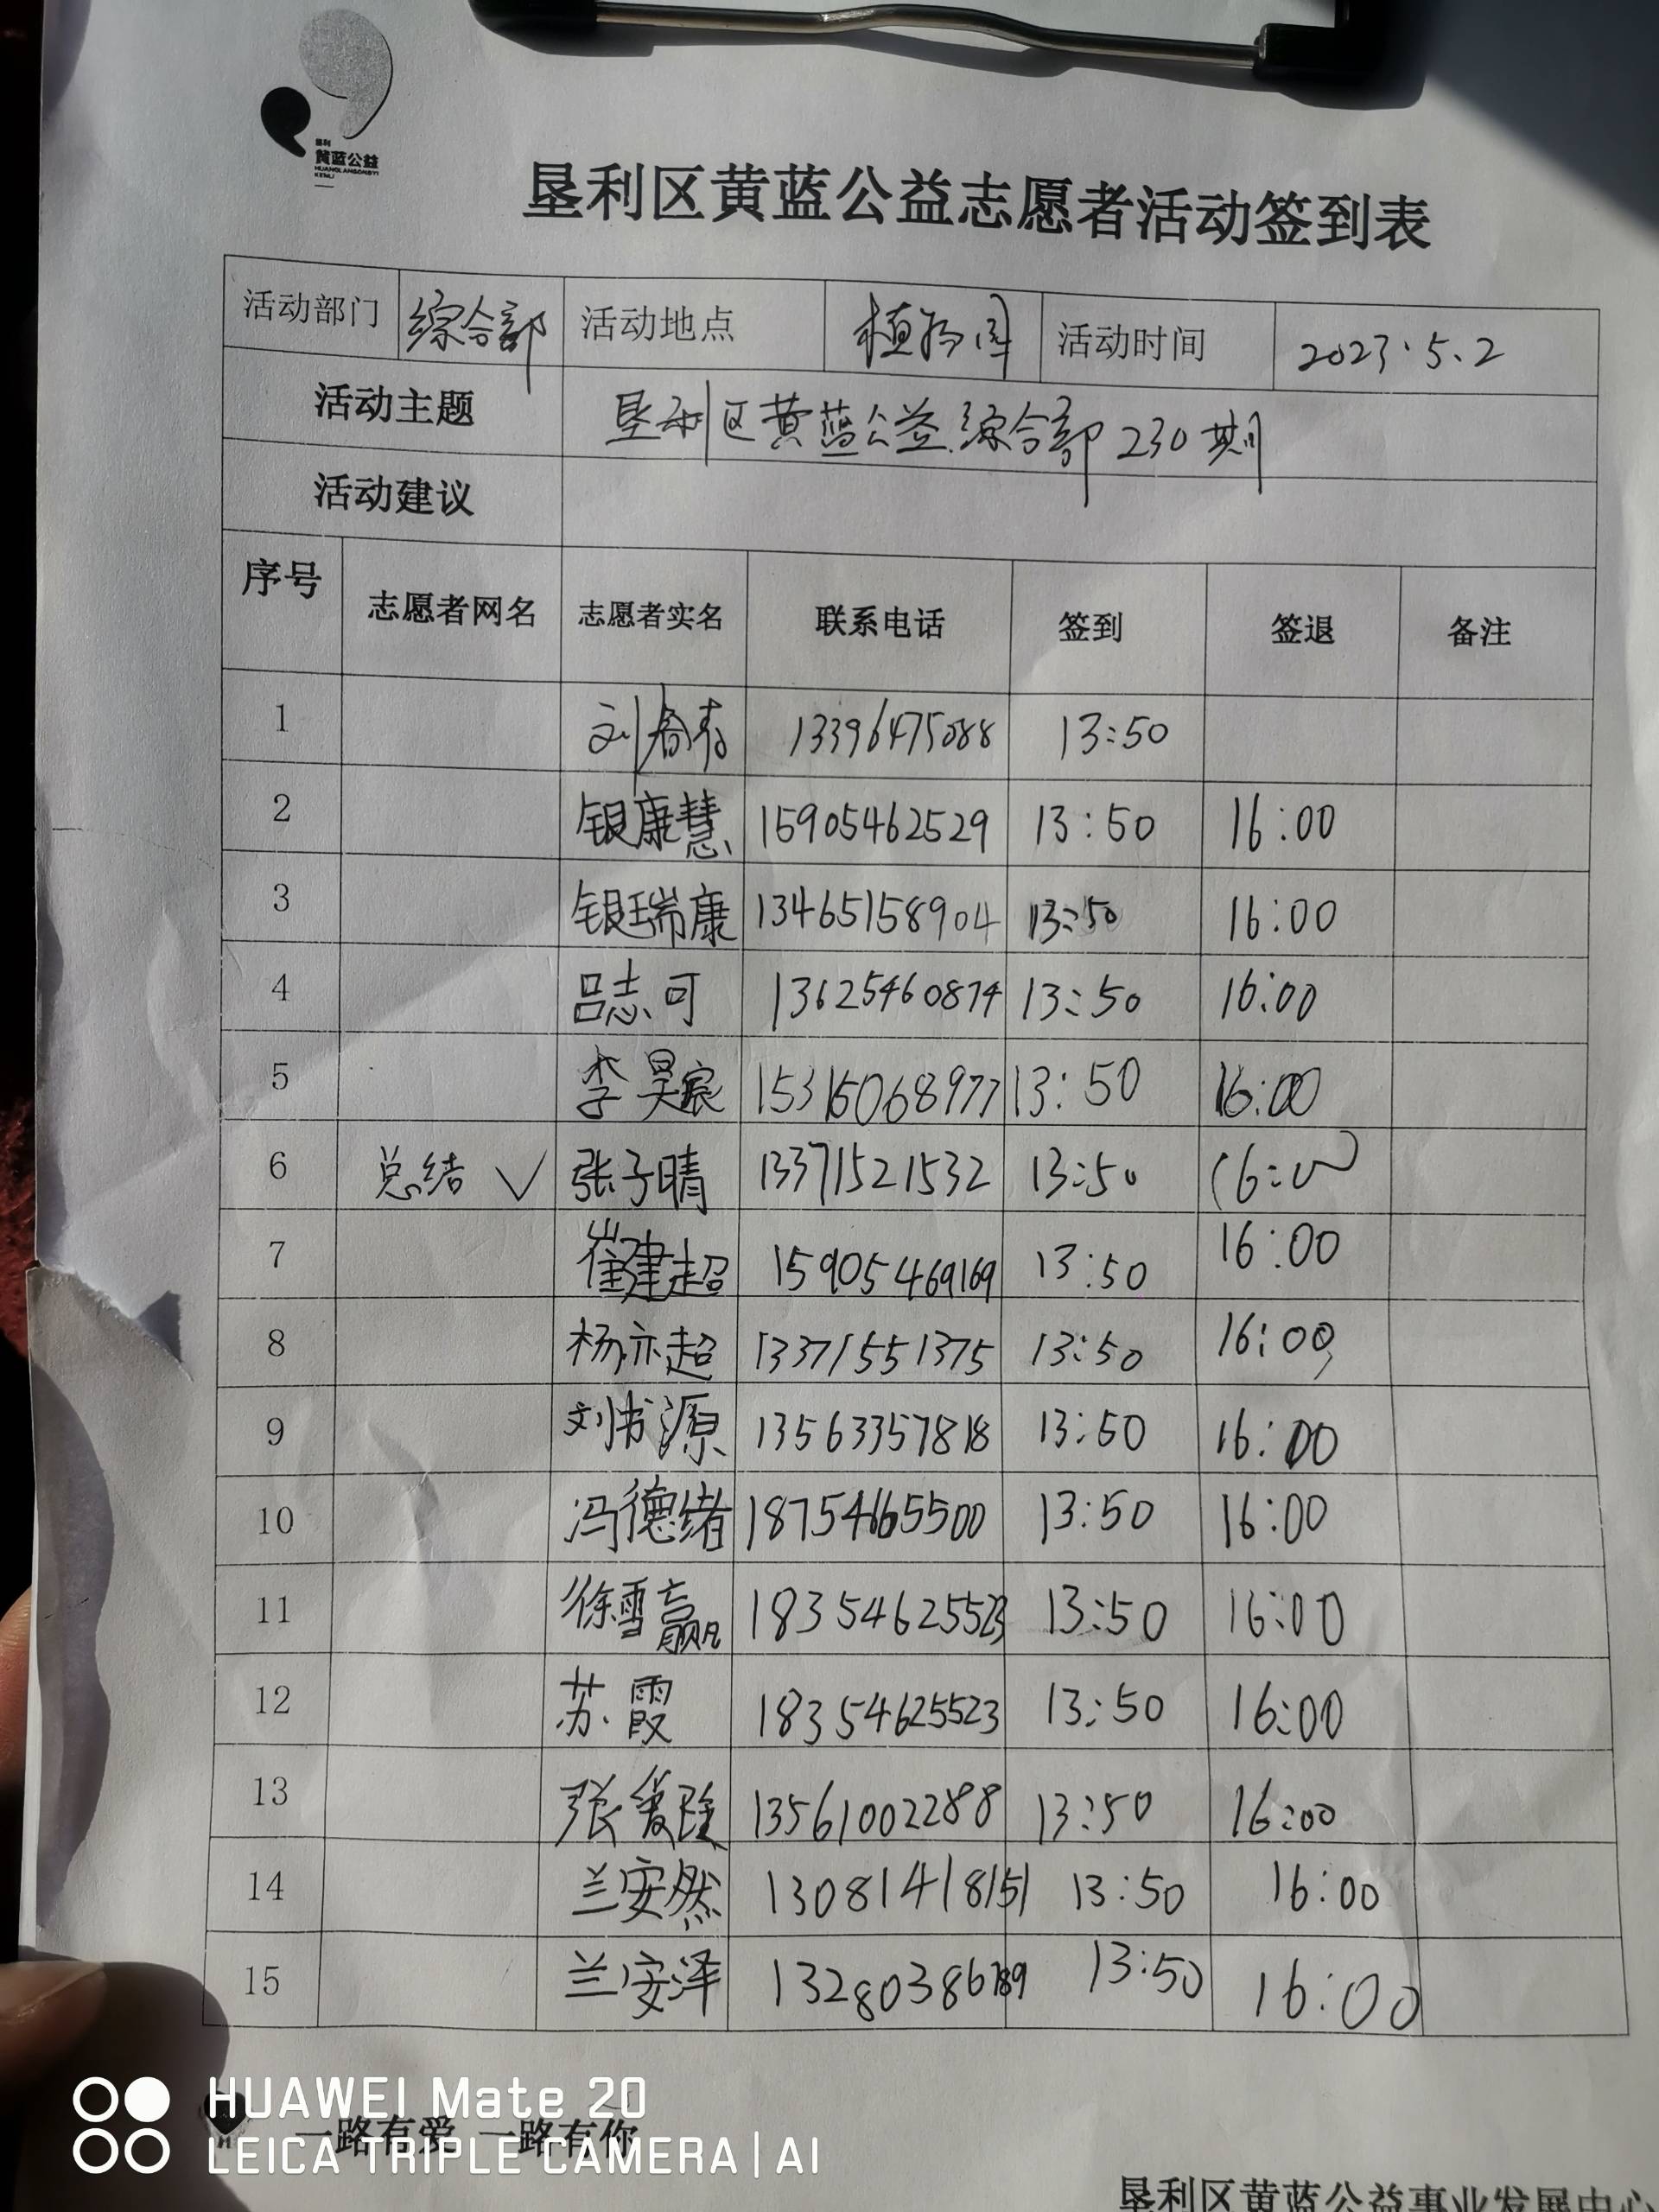 垦利
黄蓝公益
HUANGLANGONGYI
KENLI
垦利区黄蓝公益志愿者活动签到表
活动部门 综合部 活动地点 植物园 活动时间 2023.5.2
活动主题 垦利区黄蓝公益综合部230期
活动建议
序号 志愿者网名 志愿者实名 联系电话 签到 签退 备注
1 刘春 13396475088 13:50
2 银康慧 15905462529 13:50 16:00
3 银瑞康 13465158904 13:50 16:00
4 吕志可 13625460874 13:50 16:00
5 李昊宸 15316068977 13:50 16:00
6 总结 √ 张子晴 13371521532 13:50 16:00
7 崔建超 15905469169 13:50 16:00
8 杨亦超 13371551375 13:50 16:00
9 刘书源 13563357818 13:50 16:00
10 冯德绪 18754665500 13:50 16:00
11 徐雪赢 18354625523 13:50 16:00
12 苏霞 18354625523 13:50 16:00
13 张 13561002288 13:50 16:00
14 兰安然 13081418151 13:50 16:00
15 兰安泽 13280386789 13:50 16:00
一路有爱 一路有你
HUAWEI Mate 20
LEICA TRIPLE CAMERA | AI
垦利区黄蓝公益事业发展中心